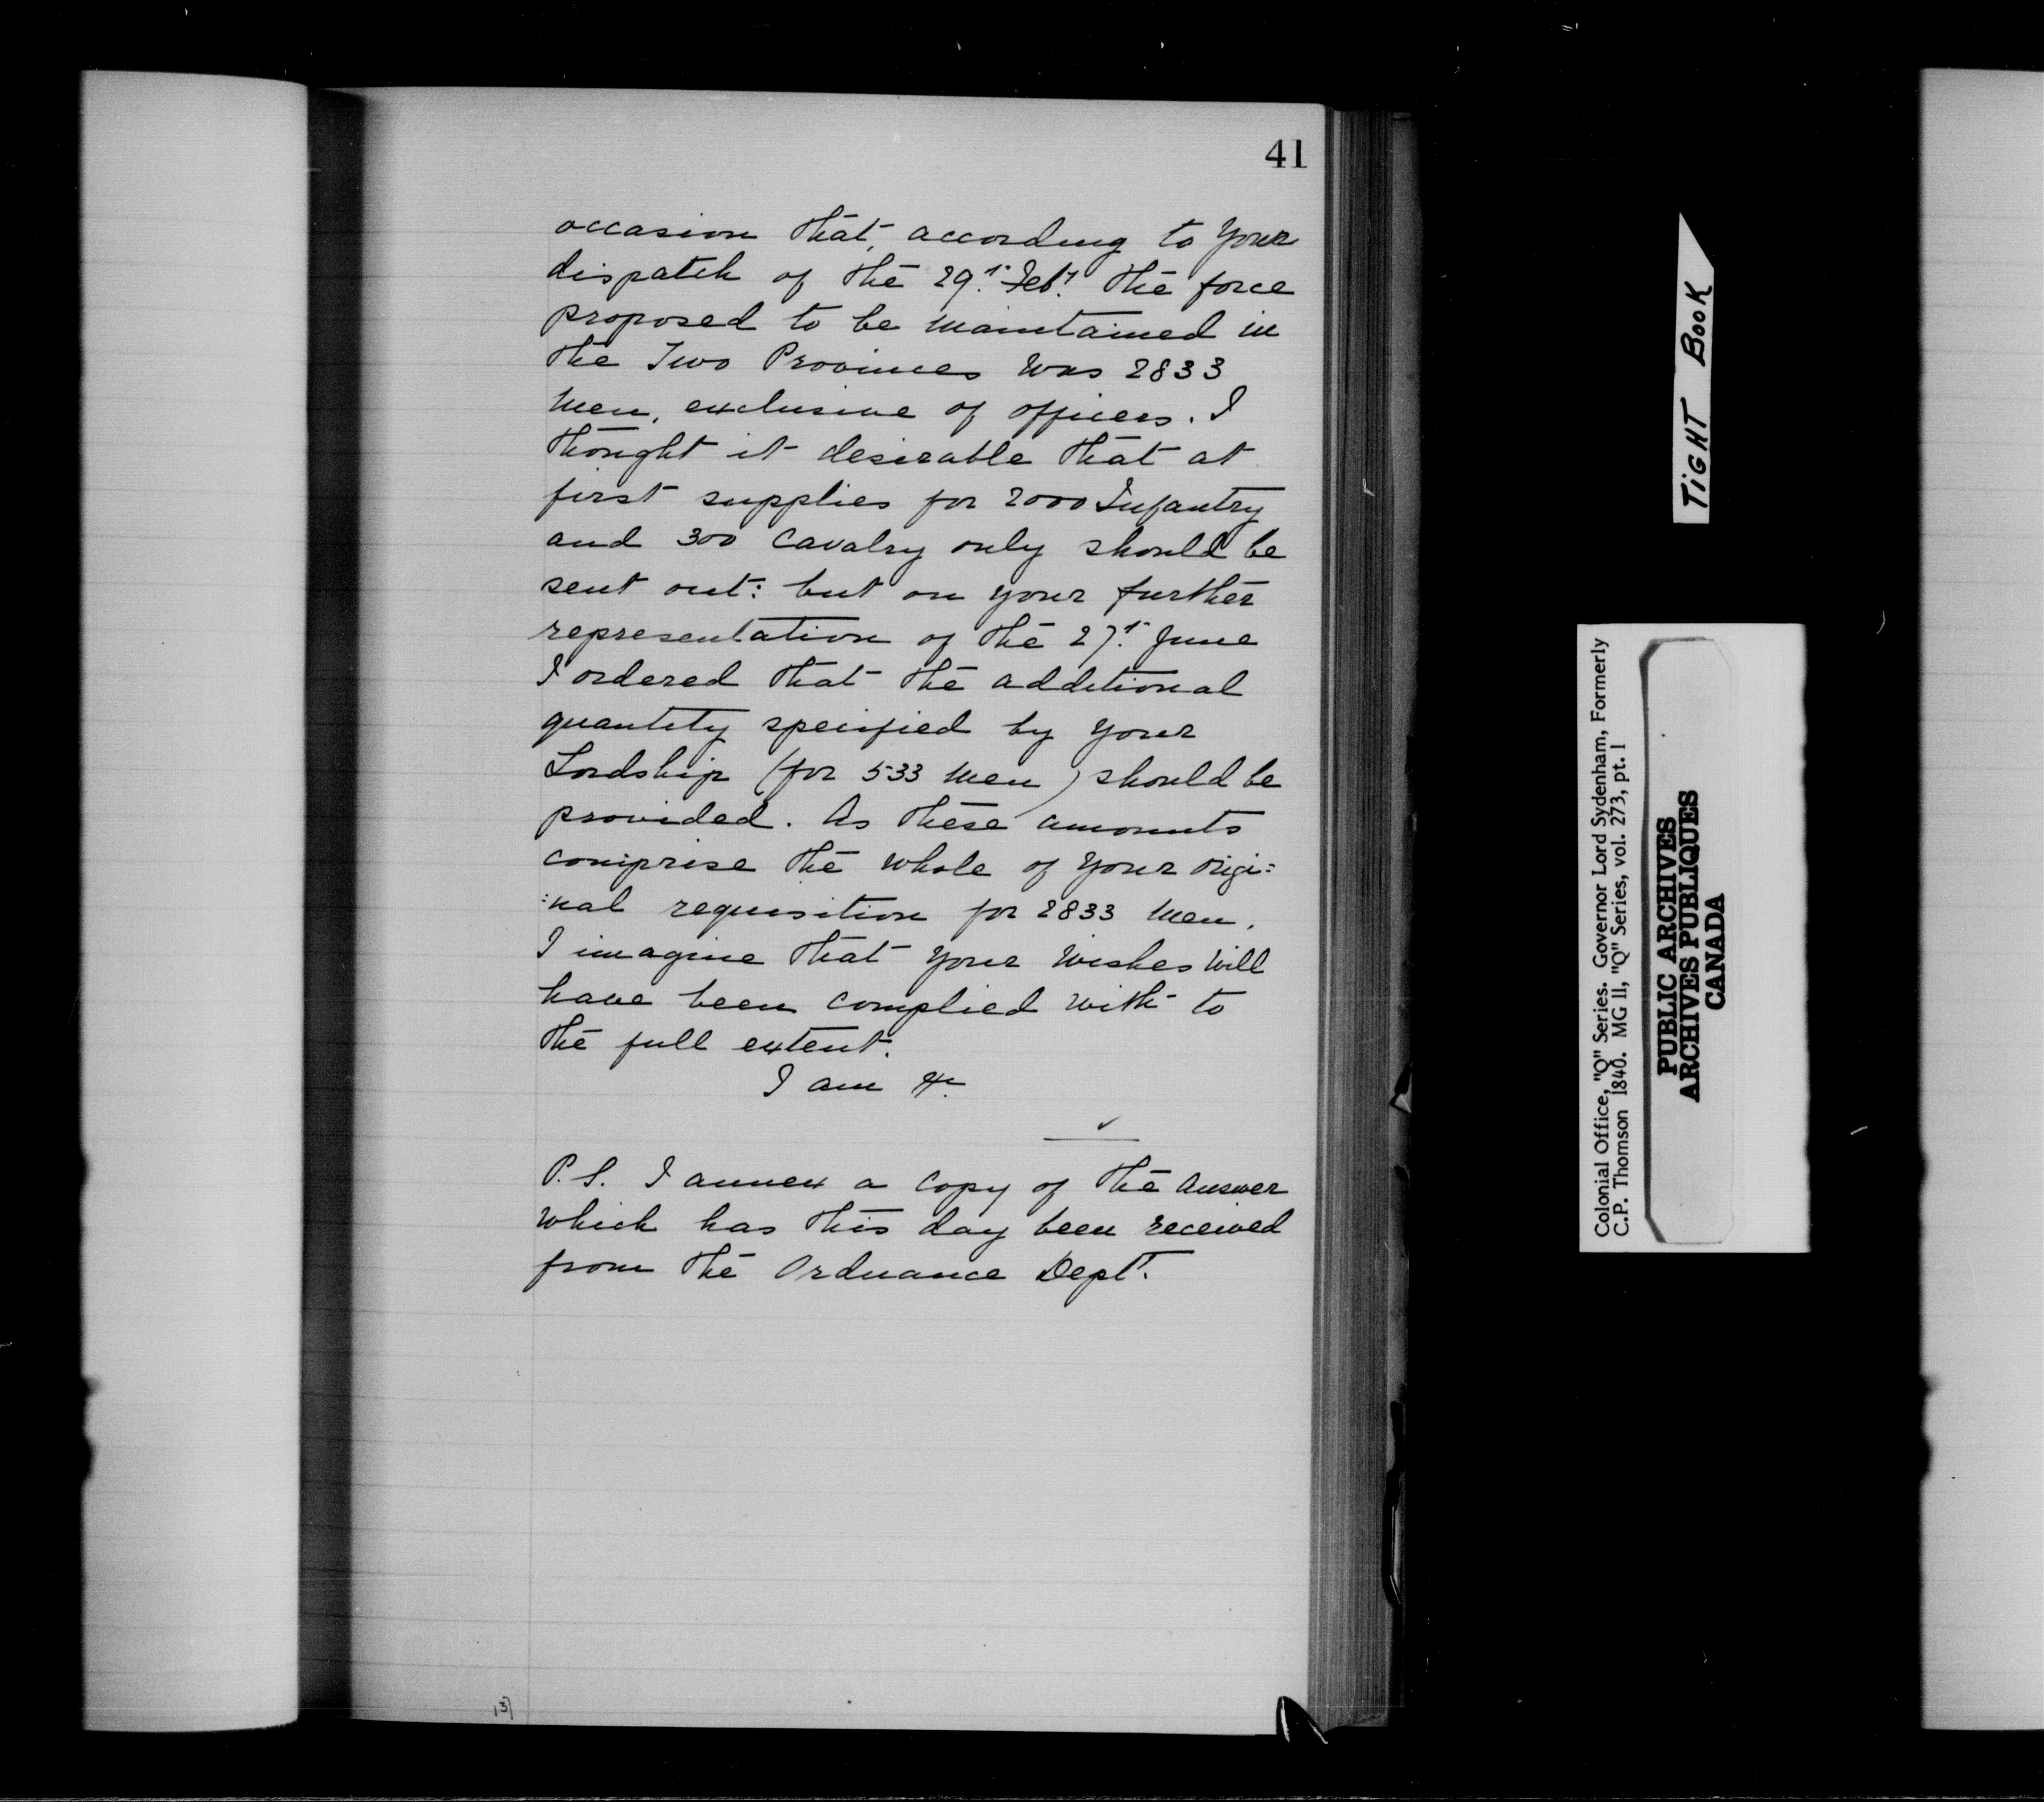 41
occasion that, according to your
dispatch of the 29.t Feb.y the force
proposed to be maintained in
the Two Provinces was 2833
men, exclusive of officers. I
thought it desirable that at
first supplies for 2000 Infantry
and 300 Cavalry only should be
sent out: but on your further
representation of the 27.t June
I ordered that the additional
quantity specified by your
Lordship (for 533 men) should be
provided. As these amounts
comprise the whole of your origi=
:nal requisition for 2833 men,
I imagine that your wishes will
have been complied with to
the full extent.
I am &c
P.S. I annex a copy of the answer
which has this day been received
from the Ordnance Dept.
13)
TIGHT BOOK
Colonial Office, "Q" Series. Governor Lord Sydenham, Formerly
C.P. Thomson 1840. MG 11, "Q" Series, vol. 273, pt. 1
PUBLIC ARCHIVES
ARCHIVES PUBLIQUES
CANADA